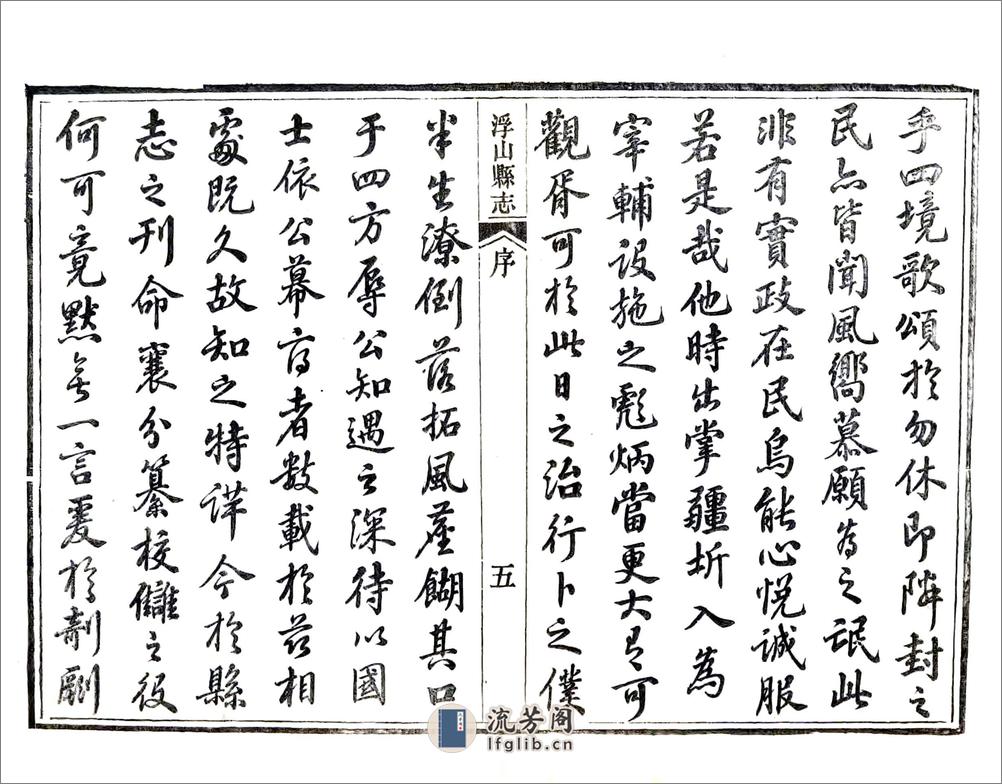 乎四境歌頌於勿休即隣封之
民亦皆聞風嚮慕願為之氓此
非有實政在民烏能心悅誠服
若是哉他時出掌疆圻入為
宰輔設施之彪炳當更大有可
觀胥可於此日之治行卜之僕
浮山縣志
序
五
半生潦倒落拓風塵餬其口
于四方辱公知遇之深待以國
士依公幕府者數載於茲相
處既久故知之特詳今於縣
志之刊命襄分纂校讎之役
何可竟默無一言爰於剞劂
流芳阁
lfglib.cn